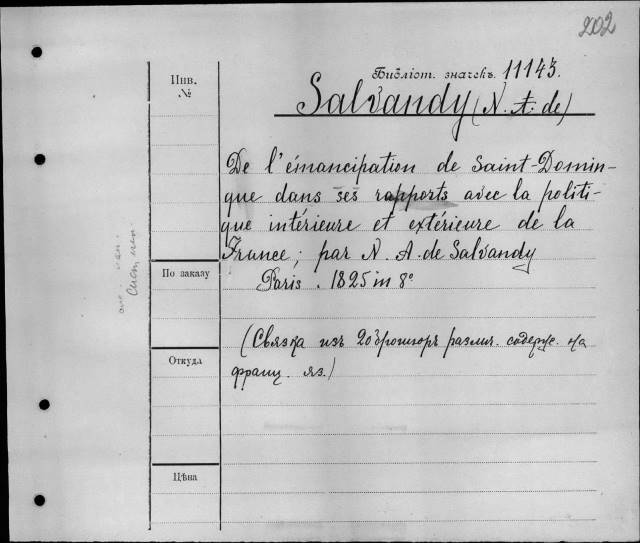 202
Библіот. значекъ 11143.
Инв.
№
Salvandy (N. A. de)
De l'émancipation de Saint-Domin-
que dans ses rapports avec la politi-
que intérieure et extérieure de la
France; par N. A. de Salvandy
По заказу
Paris. 1825 in 8°
(Связка изъ 20 брошюръ различ. содерж. на
Откуда
франц. яз.)
Цѣна